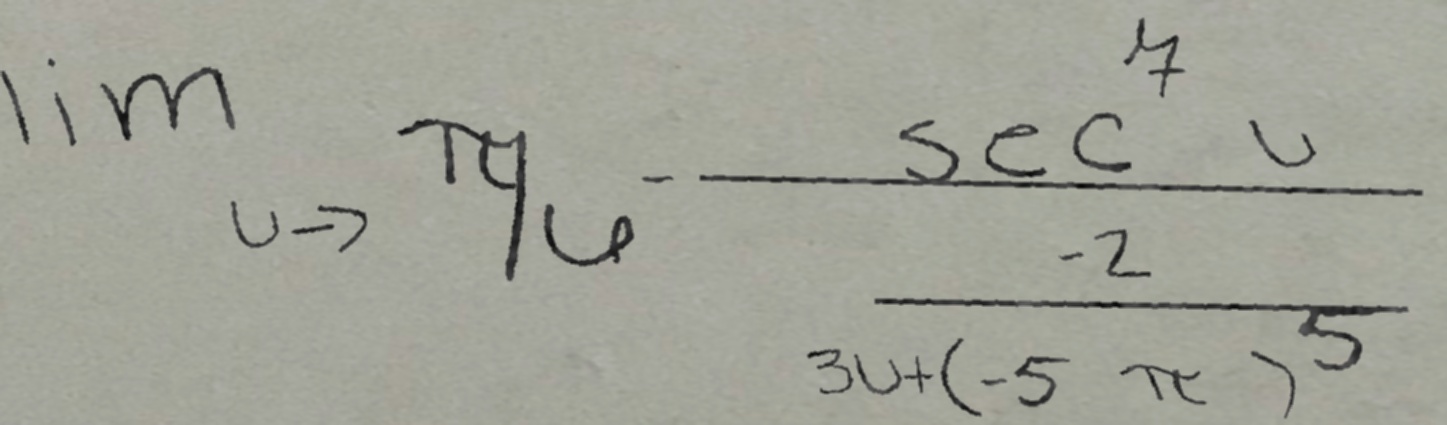 lim u→ π/6 - \frac{sec^7 u}{\frac{-2}{3u+(-5 π)^5}}